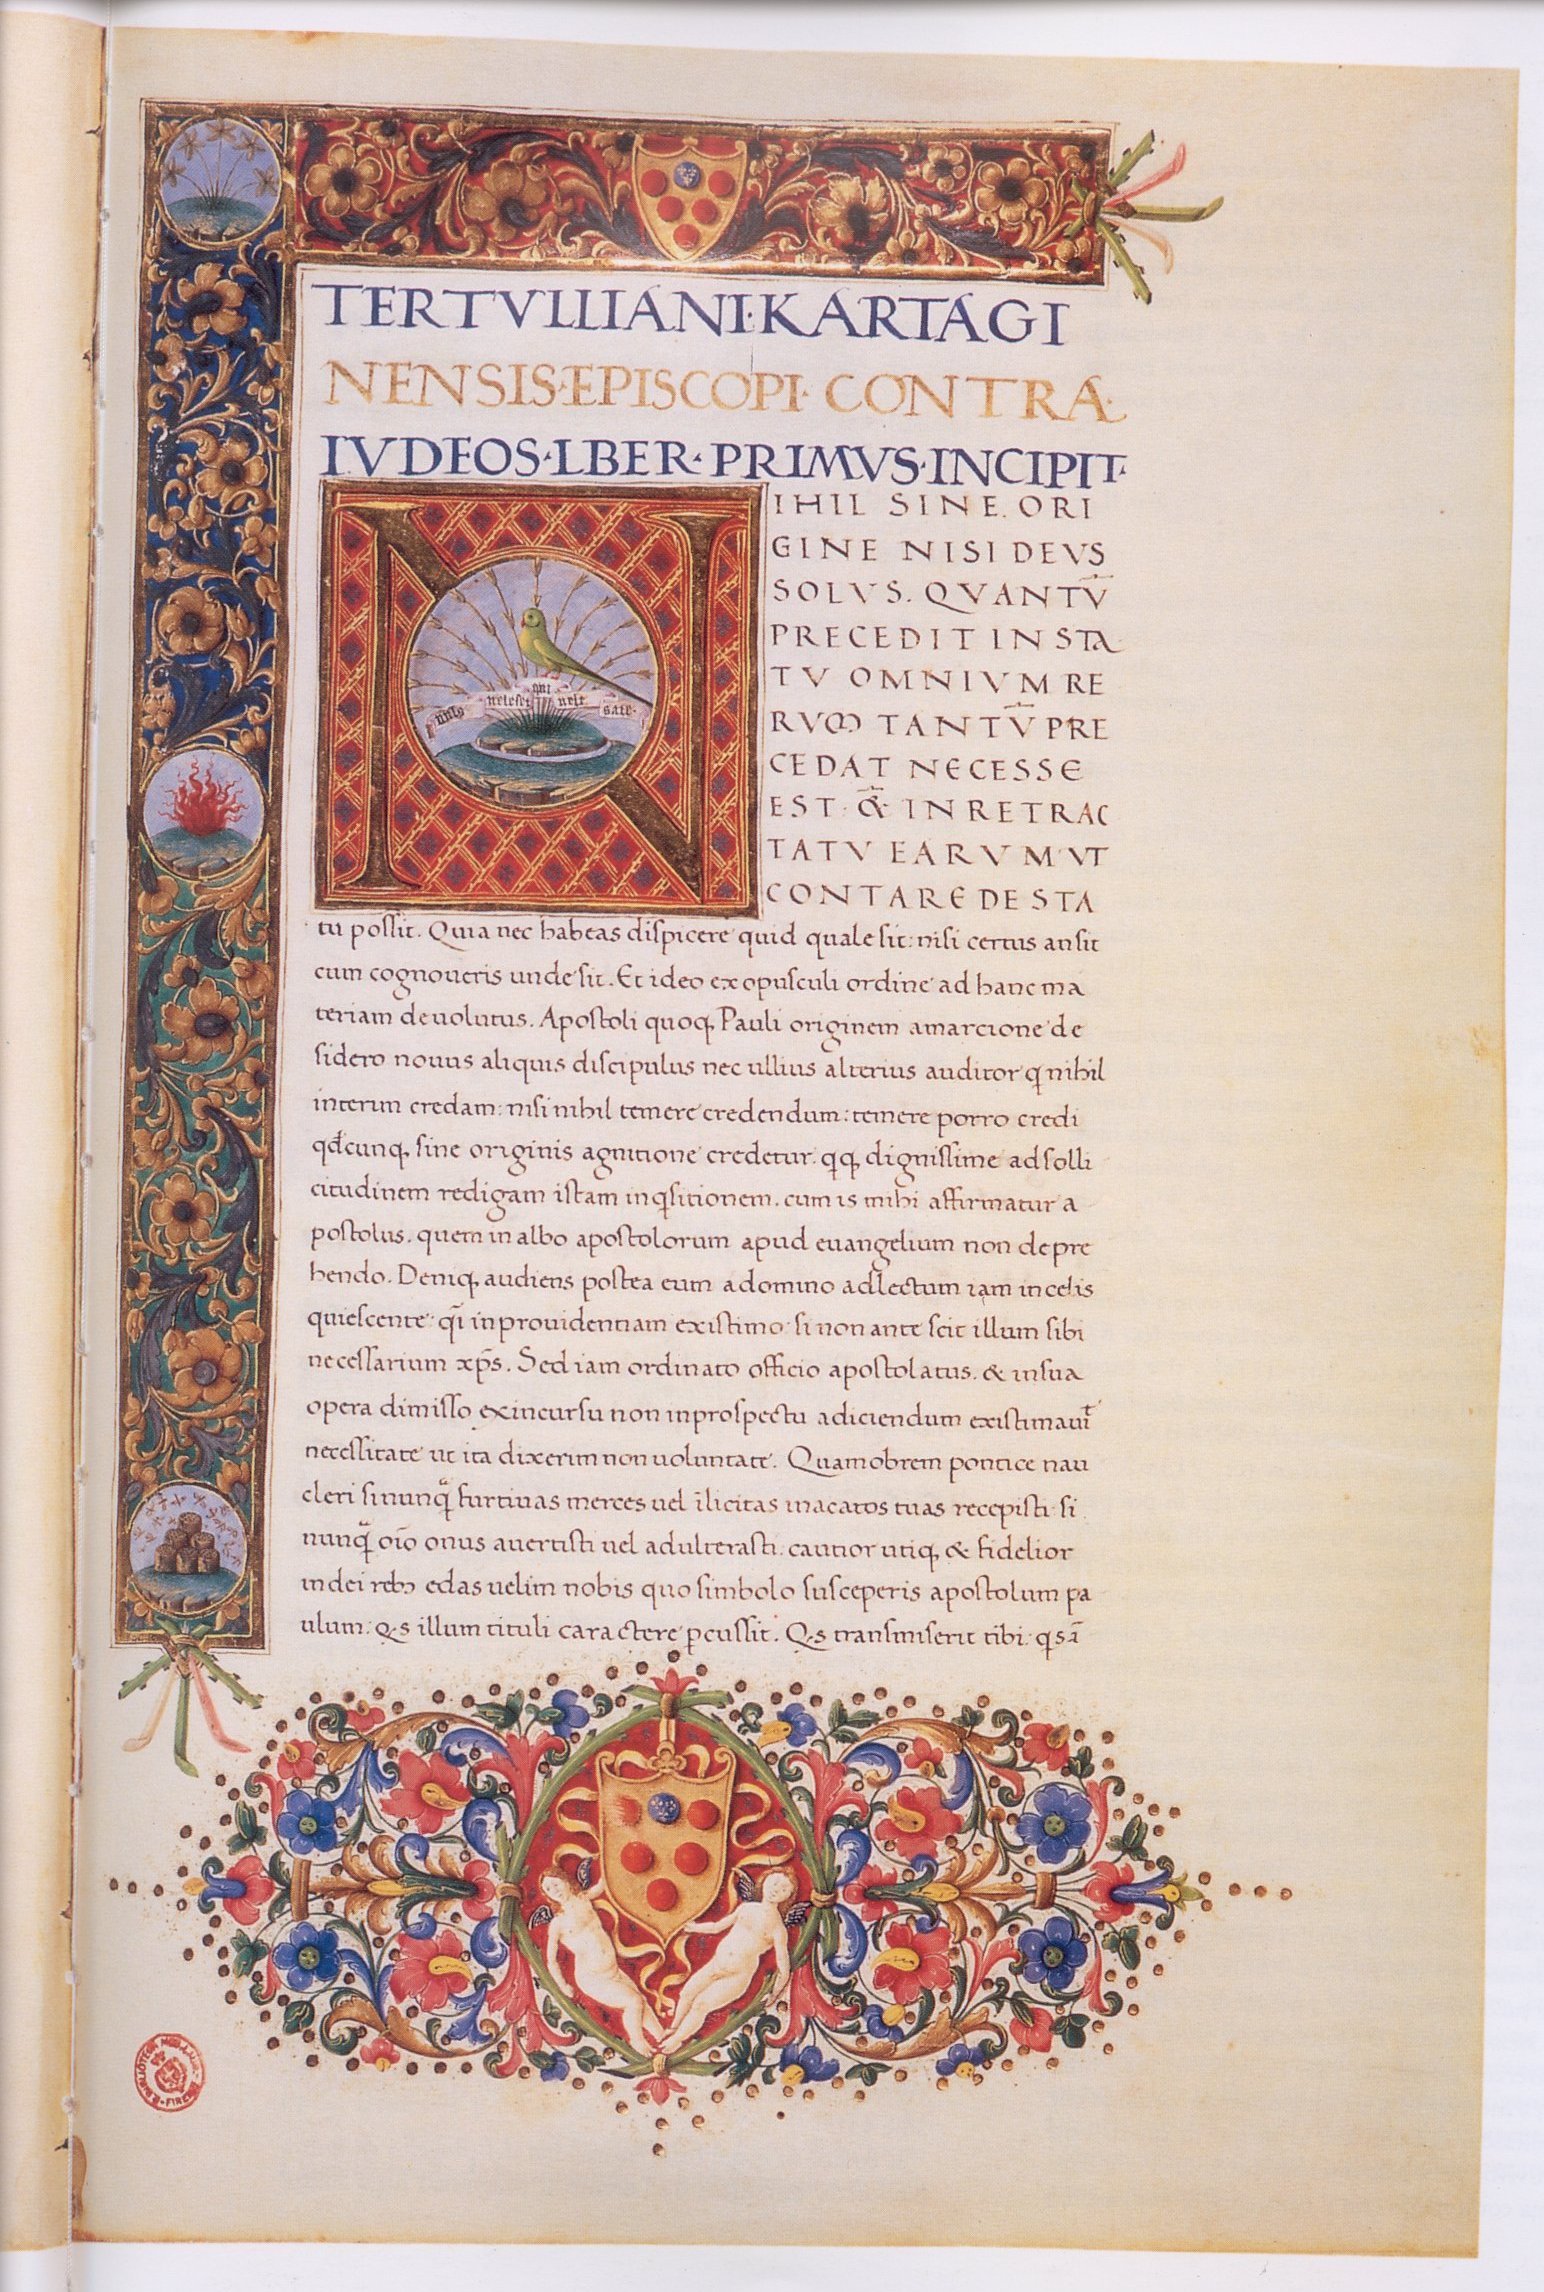 TERTVLLIANI·KARTAGI
NENSIS·EPISCOPI·CONTRA·
IVDEOS·LBER·PRIMVS·INCIPIT·
N
IHIL SINE. ORI
GINE NISI DEVS
SOLVS. QVANTV̄
PRECEDIT IN STA
TV OMNIVM RE
RVM TANTV̄ PRE
CEDAT NECESSE
EST· & IN RETRAC
TATV EARVM VT
CONTARE DE STA
tu possit. Quia nec habeas dispicere quid quale sit: nisi certus an sit
cum cognoueris unde sit. Et ideo ex opusculi ordine ad hanc ma
teriam deuolutus. Apostoli quoq, Pauli originem amarcione de
sidero nouus aliquis discipulus nec ullius alterius auditor q nihil
interim credam: nisi nihil temere credendum: temere porro credi
qdcunq, sine originis agnitione credetur. qq, dignissime ad solli
citudinem redigam istam inqsitionem. cum is mihi affirmatur a
postolus. quem in albo apostolorum apud euangelium non depre
hendo. Deniq, audiens postea eum a domino adlectum iam in celis
quiescente: qī inprouidentiam existimo si non ante scit illum sibi
necessarium xp̄s. Sed iam ordinato officio apostolatus. & in sua
opera dimisso ex incursu non in prospectu adiciendum existimauit
necessitate ut ita dixerim non uoluntate. Quamobrem pontice nau
cleri si nunq̄ furtiuas merces uel īlicitas in acatos tuas recepisti· si
nunq̄ oīo onus auertisti uel adulterasti. cautior utiq, & fidelior
in dei reb; edas uelim nobis quo simbolo susceperis apostolum pa
ulum: q·s illum tituli caractere percussit. Q·s transmiserit tibi· qs ī
qui